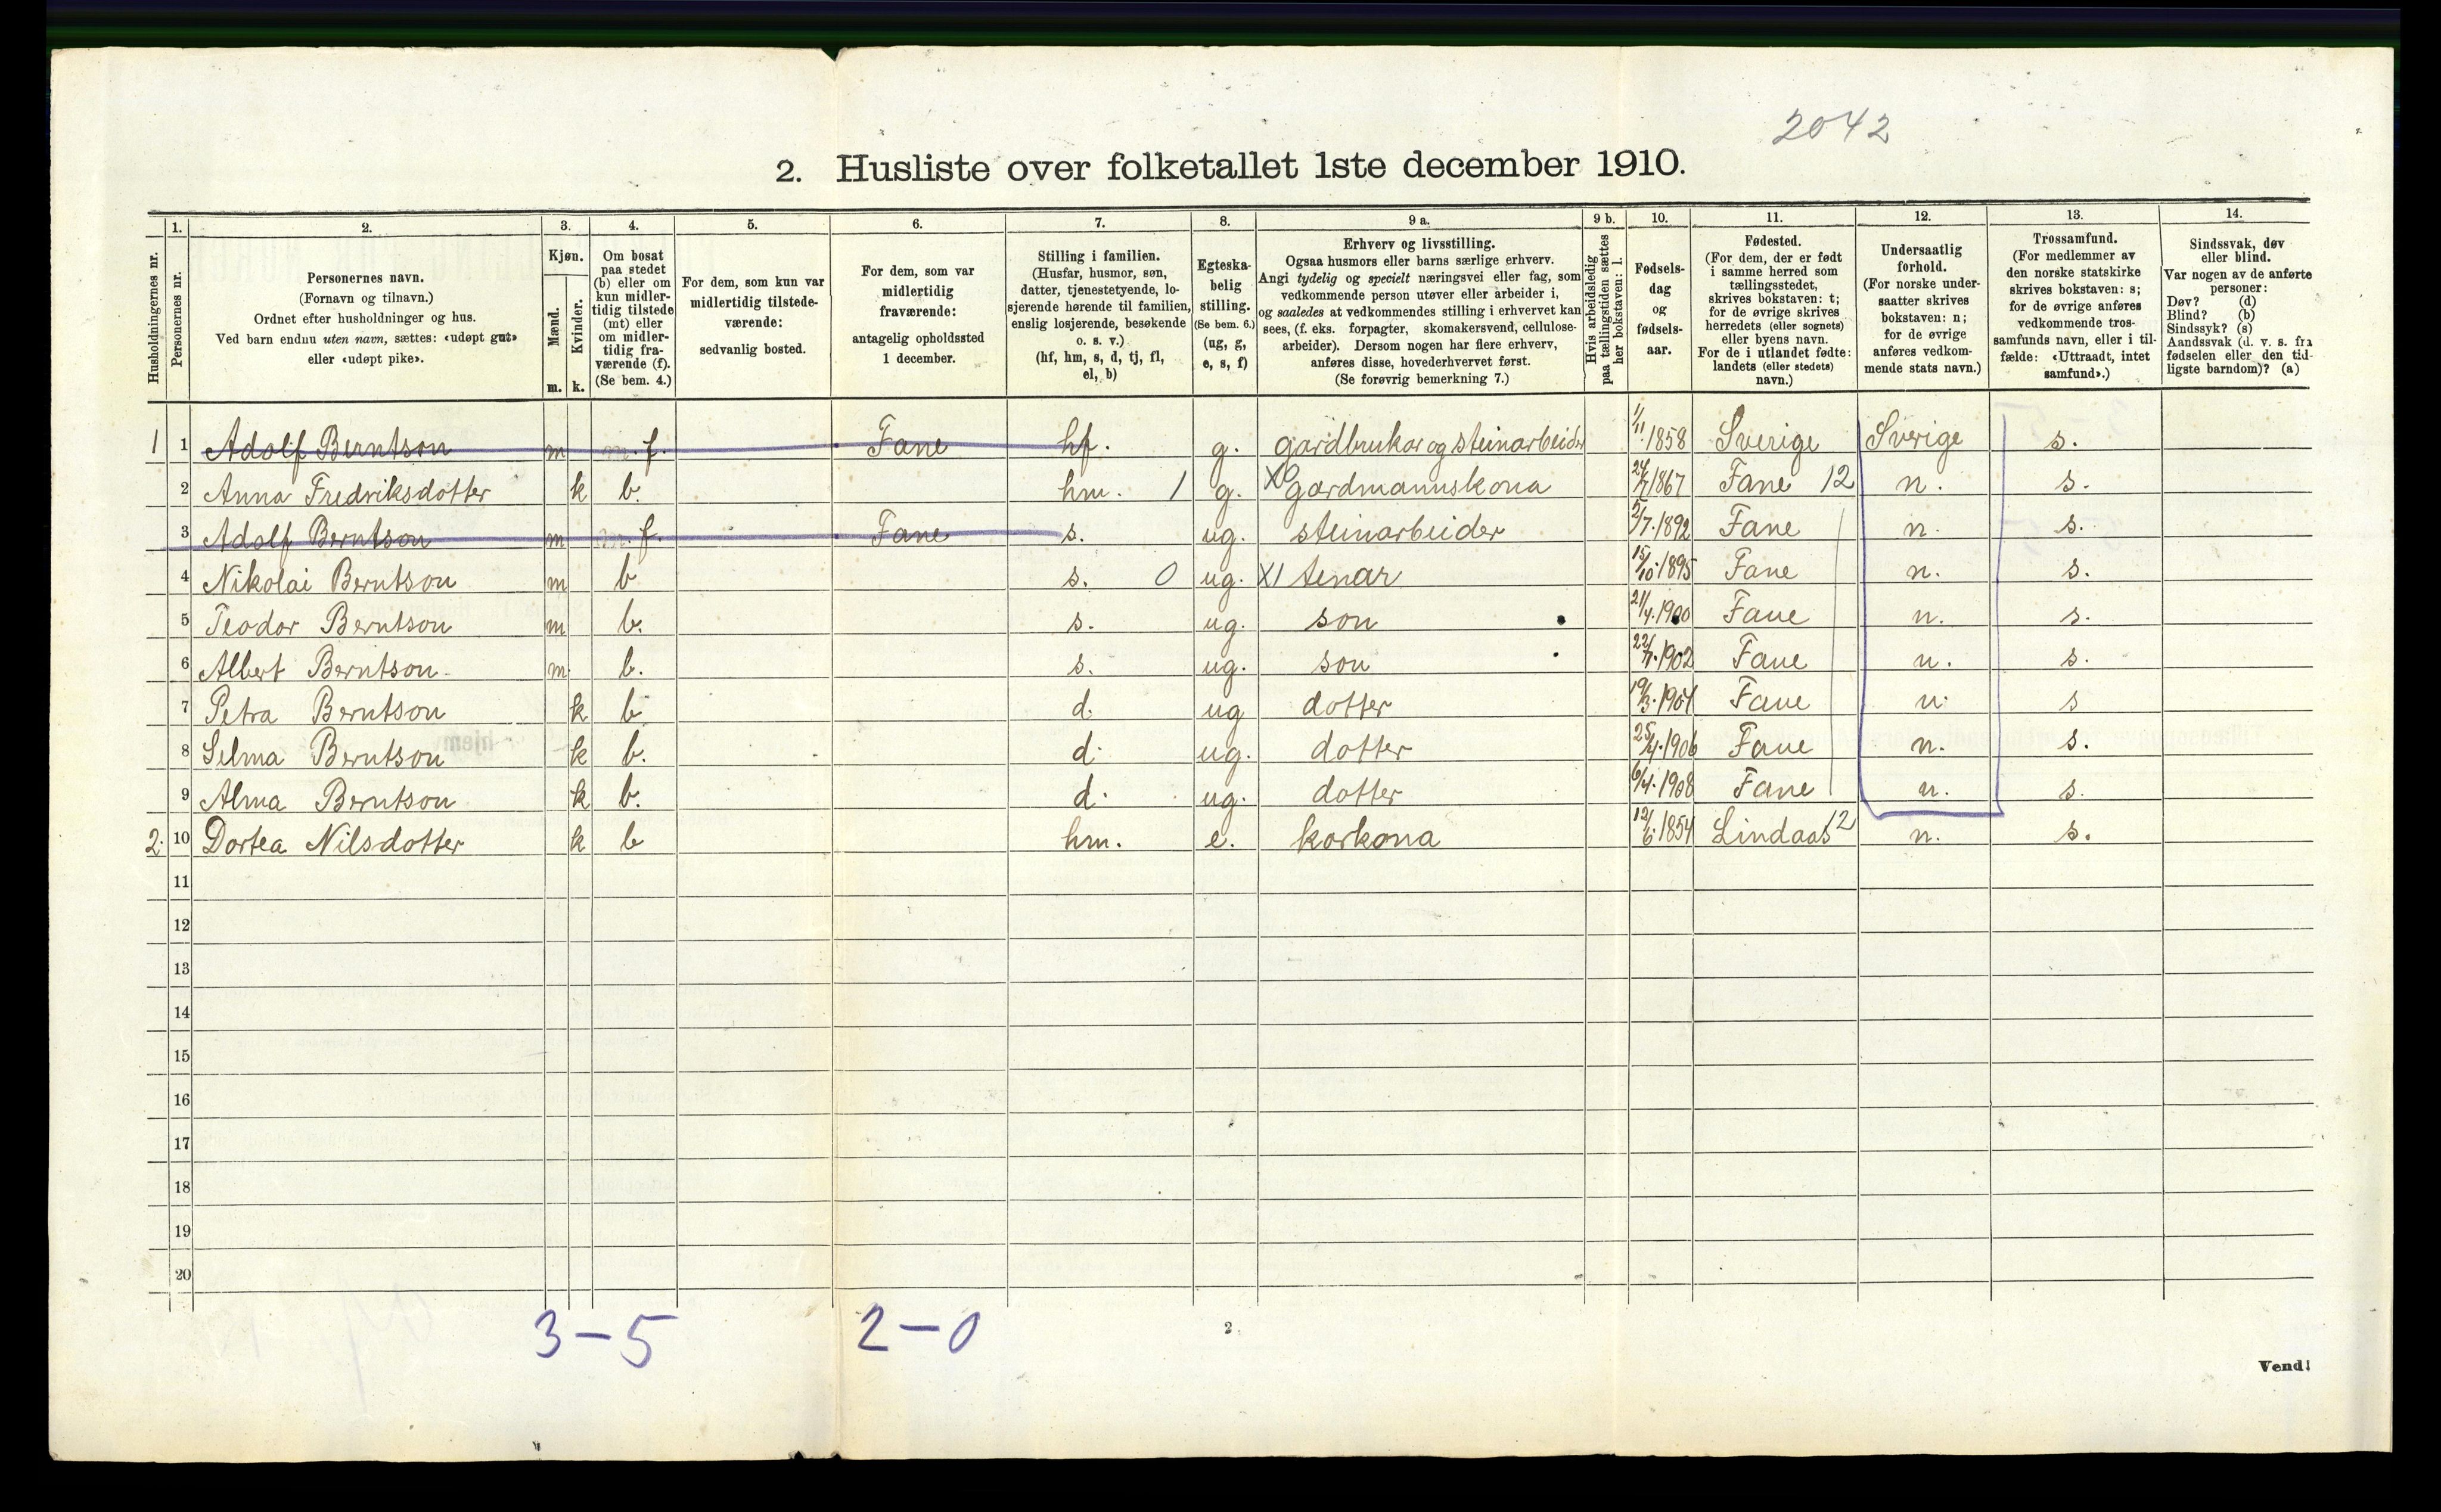 2042
2. Husliste over folketallet 1ste december 1910.
1. 2. 3. 4. 5. 6. 7. 8. 9 a. 9 b. 10. 11. 12. 13. 14.
Husholdningernes nr.
Personernes nr.
Personernes navn.
(Fornavn og tilnavn.)
Ordnet efter husholdninger og hus.
Ved barn endnu uten navn, sættes: «udøpt gut»
eller «udøpt pike».
Kjøn.
Mænd.
Kvinder.
m. k.
Om bosat
paa stedet
(b) eller om
kun midler-
tidig tilstede
(mt) eller
om midler-
tidig fra-
værende (f).
(Se bem. 4.)
For dem, som kun var
midlertidig tilstede-
værende:
sedvanlig bosted.
For dem, som var
midlertidig
fraværende:
antagelig opholdssted
1 december.
Stilling i familien.
(Husfar, husmor, søn,
datter, tjenestetyende, lo-
sjerende hørende til familien,
enslig losjerende, besøkende
o. s. v.)
(hf, hm, s, d, tj, fl,
el, b)
Egteska-
belig
stilling.
(Se bem. 6.)
(ug, g,
e, s, f)
Erhverv og livsstilling.
Ogsaa husmors eller barns særlige erhverv.
Angi tydelig og specielt næringsvei eller fag, som
vedkommende person utøver eller arbeider i,
og saaledes at vedkommendes stilling i erhvervet kan
sees, (f. eks. forpagter, skomakersvend, cellulose-
arbeider). Dersom nogen har flere erhverv,
anføres disse, hovederhvervet først.
(Se forøvrig bemerkning 7.)
Hvis arbeidsledig
paa tællingstiden sættes
her bokstaven: l.
Fødsels-
dag
og
fødsels-
aar.
Fødested.
(For dem, der er født
i samme herred som
tællingsstedet,
skrives bokstaven: t;
for de øvrige skrives
herredets (eller sognets)
eller byens navn.
For de i utlandet fødte:
landets (eller stedets)
navn.)
Undersaatlig
forhold.
(For norske under-
saatter skrives
bokstaven: n;
for de øvrige
anføres vedkom-
mende stats navn.)
Trossamfund.
(For medlemmer av
den norske statskirke
skrives bokstaven: s;
for de øvrige anføres
vedkommende tros-
samfunds navn, eller i til-
fælde: «Uttraadt, intet
samfund».)
Sindssvak, døv
eller blind.
Var nogen av de anførte
personer:
Døv? (d)
Blind? (b)
Sindssyk? (s)
Aandssvak (d. v. s. fra
fødselen eller den tid-
ligste barndom)? (a)
1 1 Adolf Berntson m f. Fane hf. g. gardbrukar og steinarbeider 1/11 1858 Sverige Sverige s.
2 Anna Fredriksdotter k b. hm. 1 g. X0 gardmannskona 1867 Fane 12 n. s.
3 Adolf Berntson m f. Fane s. ug. steinarbeider 5/7.1892 Fane n. s.
4 Nikolai Berntson m b s. 0 ug. X1 tenar 15/10.1895 Fane n. s.
5 Teodor Berntson m b. s. ug. son 21/4.1900 Fane n. s.
6 Albert Berntson m. b. s. ug. son 1902 Fane n. s.
7 Petra Berntson k b d. ug dotter 19/3.1904 Fane n. s
8 Selma Berntson k b. d. ug. dotter 25/4.1906 Fane n. s.
9 Alma Berntson k b. d. ug. dotter 6/4.1908 Fane n. s.
2. 10 Dortea Nilsdotter k b hm. e. korkona 12/6.1854 Lindaas 12 n. s.
11
12
13
14
15
16
17
18
19
20
3-5 2-0
2
Vend!